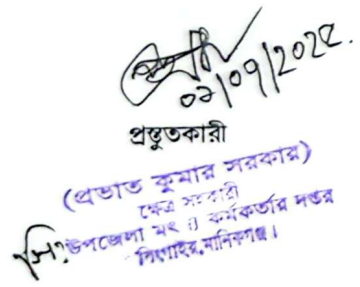 ০২/০৭/২০২৫.
প্রস্তুতকারী
(প্রভাত কুমার সরকার)
ক্ষেত্র সহকারী
সিঃ উপজেলা মৎস্য কর্মকর্তার দপ্তর
সিংগাইর, মানিকগঞ্জ।